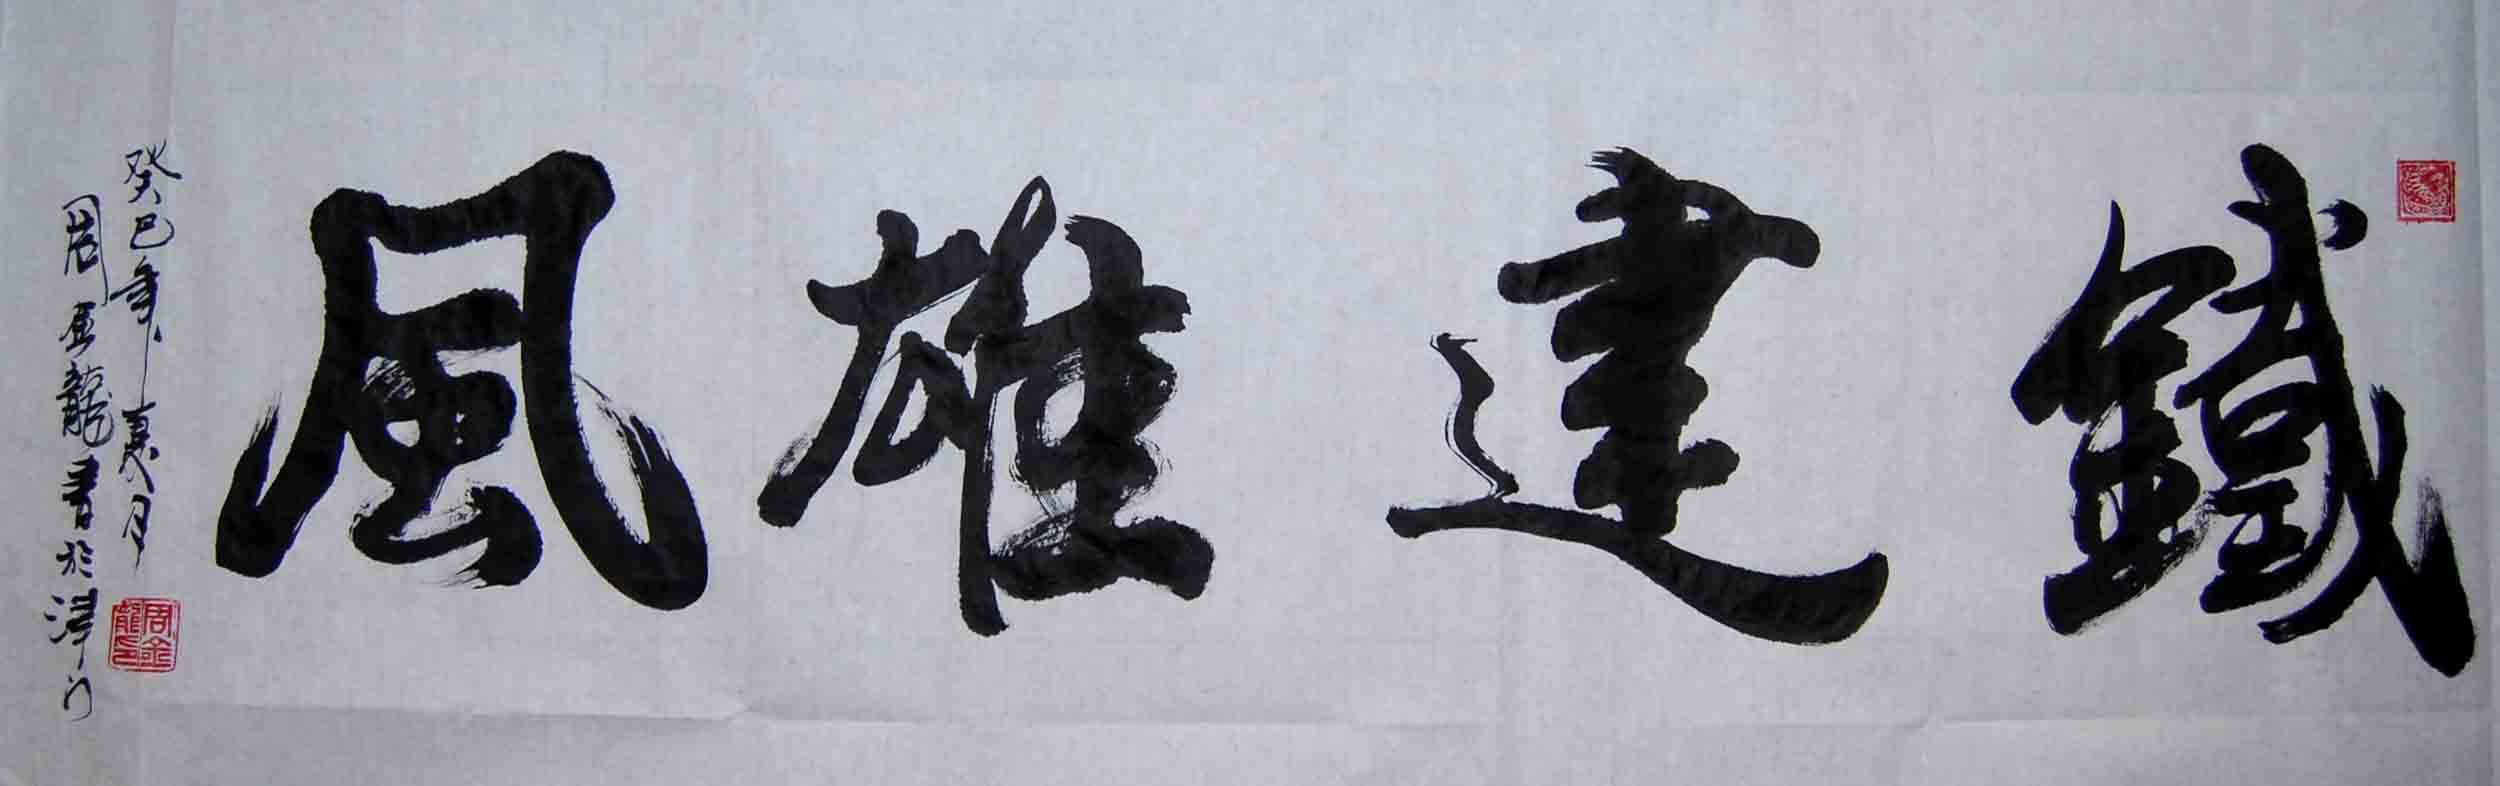 鐵建雄風
癸巳年夏月
周金龍書於津門
周金龍印